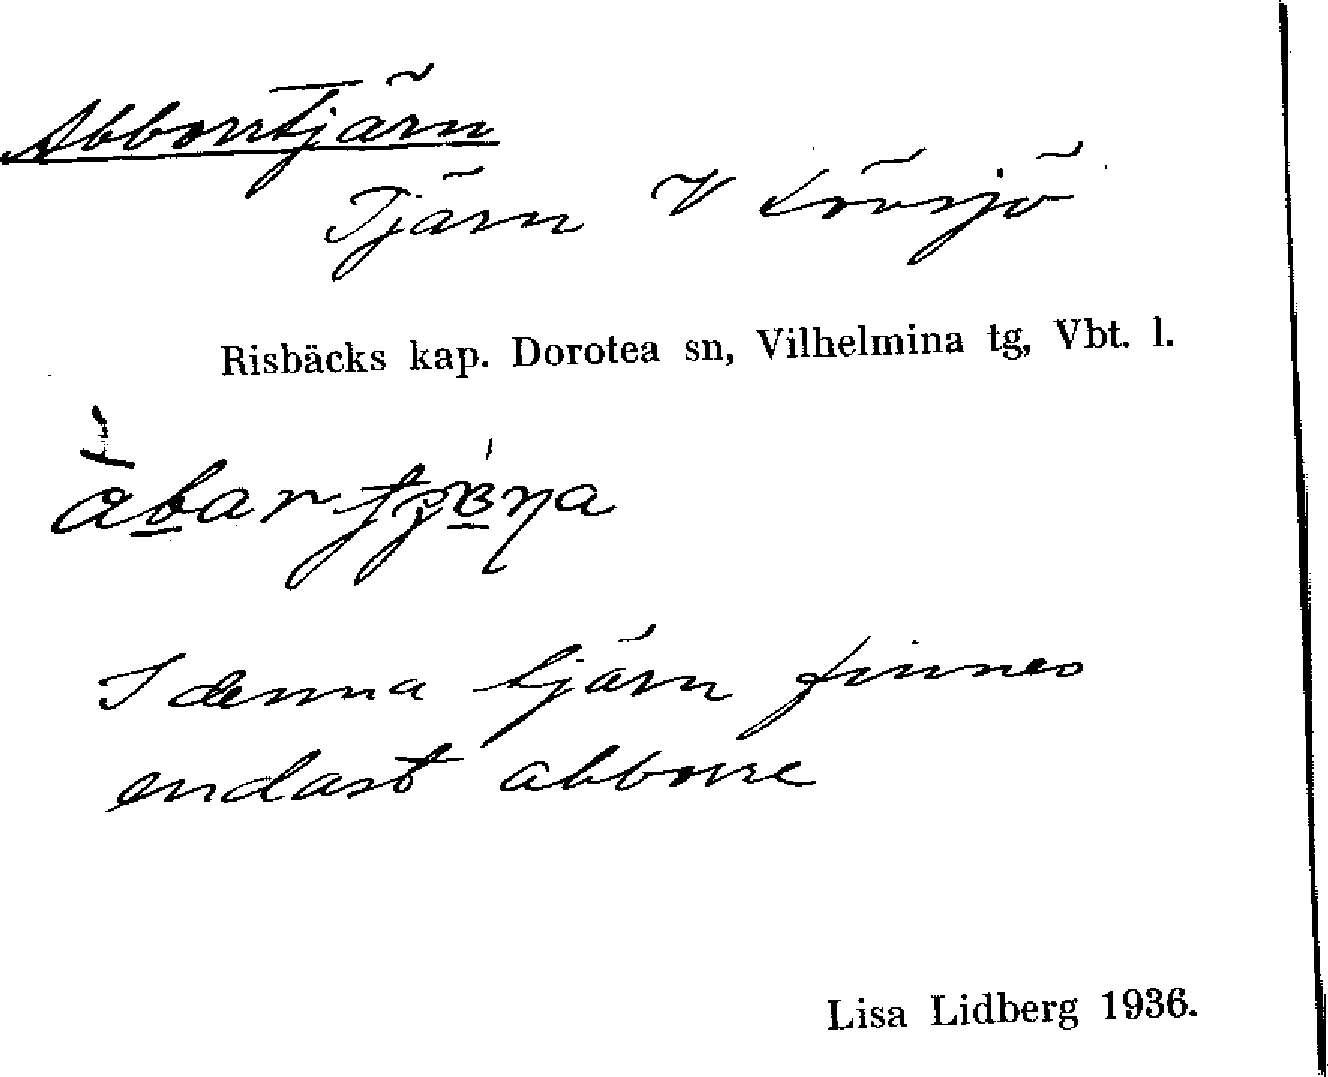 Abborrtjärn
Tjärn V Lövsjö
Risbäcks kap. Dorotea sn, Vilhelmina tg, Vbt. l.
I denna tjärn finnes
endast abborre
Lisa Lidberg 1936.